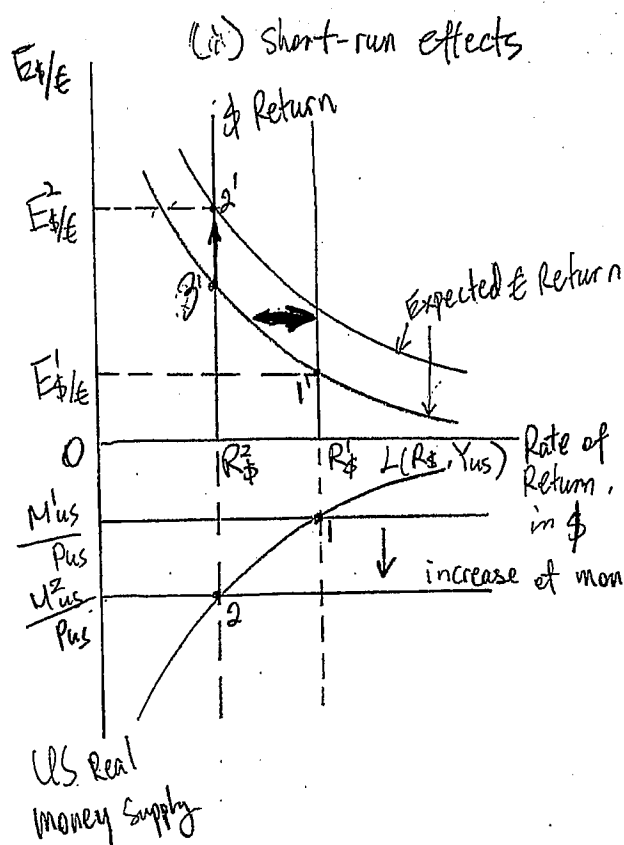 (ii) short-run effects
E$/€
$ Return
E²$/€
2'
3'
Expected € Return
E¹$/€
1'
0
R²$
R¹$
L(R$, Yus)
Rate of
Return,
in $
M¹us
Pus
1
increase of mon
M²us
Pus
2
US Real
money Supply